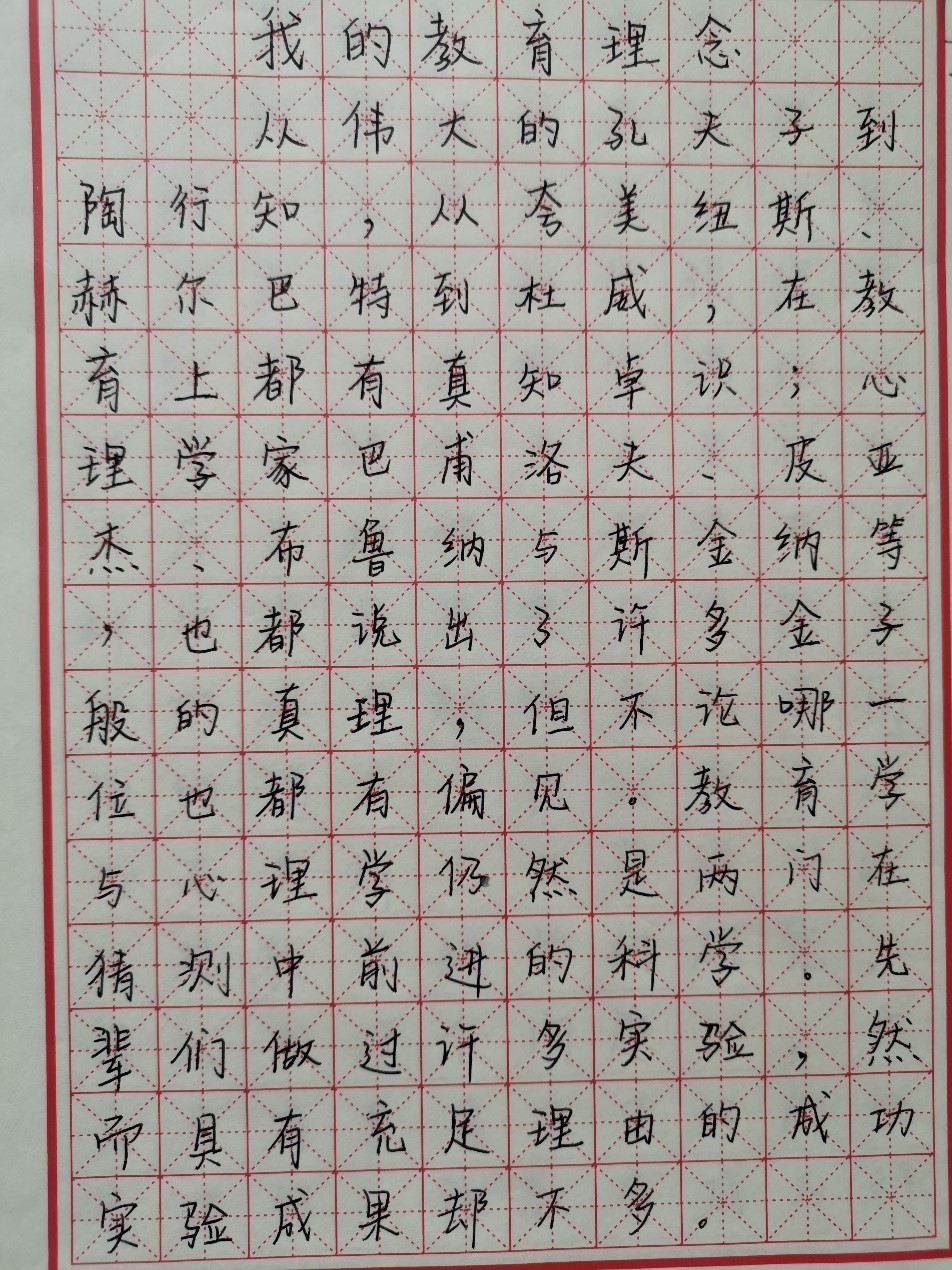 我的教育理念
从伟大的孔夫子到
陶行知，从夸美纽斯、
赫尔巴特到杜威，在教
育上都有真知卓识；心
理学家巴甫洛夫、皮亚
杰、布鲁纳与斯金纳等
，也都说出了许多金子
般的真理，但不论哪一
位也都有偏见。教育学
与心理学仍然是两门在
猜测中前进的科学。先
辈们做过许多实验，然
而具有充足理由的成功
实验成果却不多。